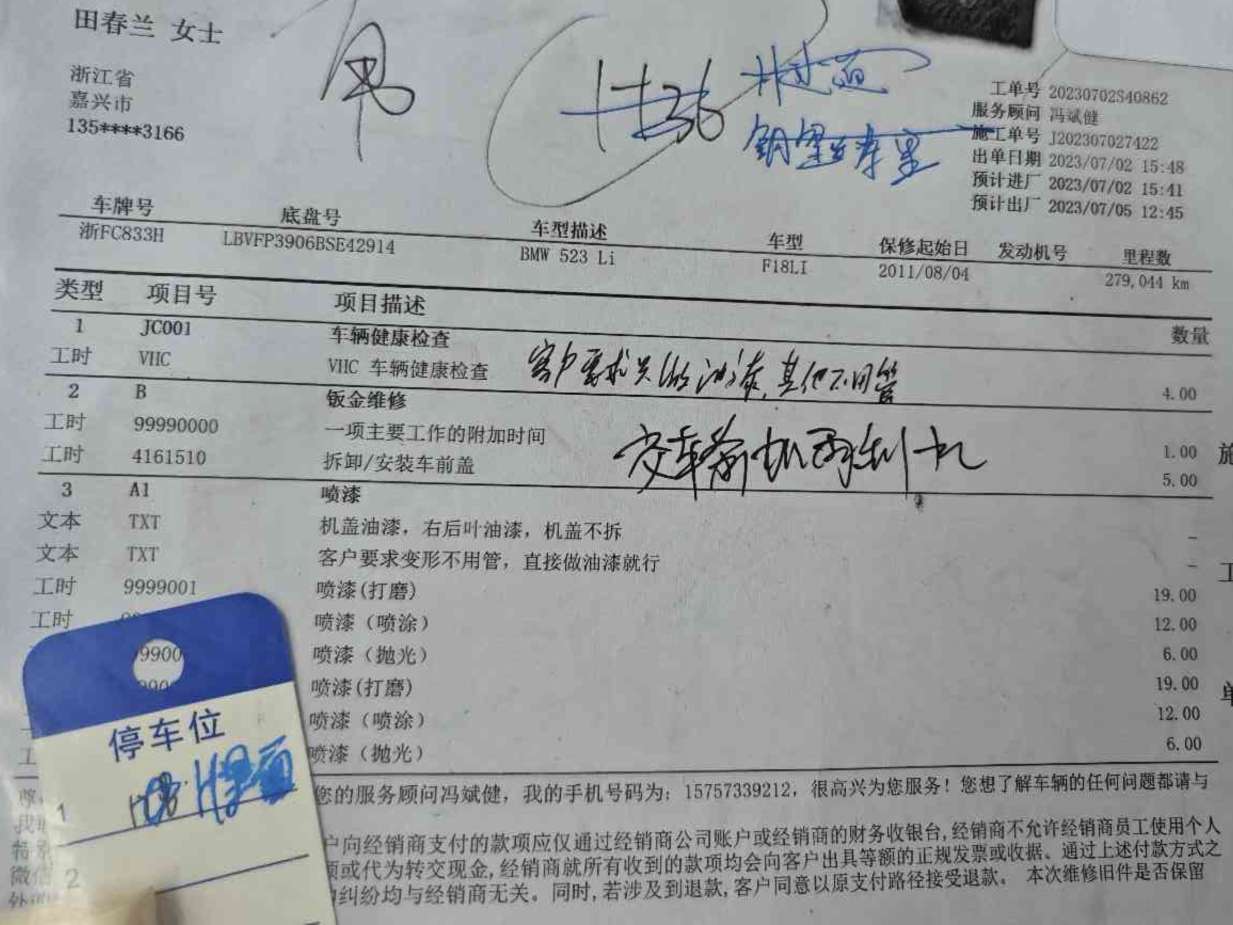 田春兰 女士
浙江省
嘉兴市
135****3166
工单号 20230702S40862
服务顾问 冯斌健
施工单号 J202307027422
出单日期 2023/07/02 15:48
预计进厂 2023/07/02 15:41
预计出厂 2023/07/05 12:45
车牌号 底盘号 车型描述 车型 保修起始日 发动机号 里程数
浙FC833H LBVFP3906BSE42914 BMW 523 Li F18LI 2011/08/04 279,044 km
类型 项目号 项目描述 数量
1 JC001 车辆健康检查
工时 VHC VHC 车辆健康检查 4.00
客户要求只做油漆,其他不用管
2 B 钣金维修
工时 99990000 一项主要工作的附加时间 1.00
工时 4161510 拆卸/安装车前盖 5.00
交车前
3 A1 喷漆
文本 TXT 机盖油漆，右后叶油漆，机盖不拆 -
文本 TXT 客户要求变形不用管，直接做油漆就行 -
工时 9999001 喷漆(打磨) 19.00
工时 喷漆（喷涂） 12.00
喷漆（抛光） 6.00
喷漆(打磨) 19.00
喷漆（喷涂） 12.00
喷漆（抛光） 6.00
停车位
1
2
您的服务顾问冯斌健，我的手机号码为：15757339212，很高兴为您服务！您想了解车辆的任何问题都请与
户向经销商支付的款项应仅通过经销商公司账户或经销商的财务收银台,经销商不允许经销商员工使用个人
或代为转交现金,经销商就所有收到的款项均会向客户出具等额的正规发票或收据、通过上述付款方式之
纠纷均与经销商无关。同时,若涉及到退款,客户同意以原支付路径接受退款。 本次维修旧件是否保留